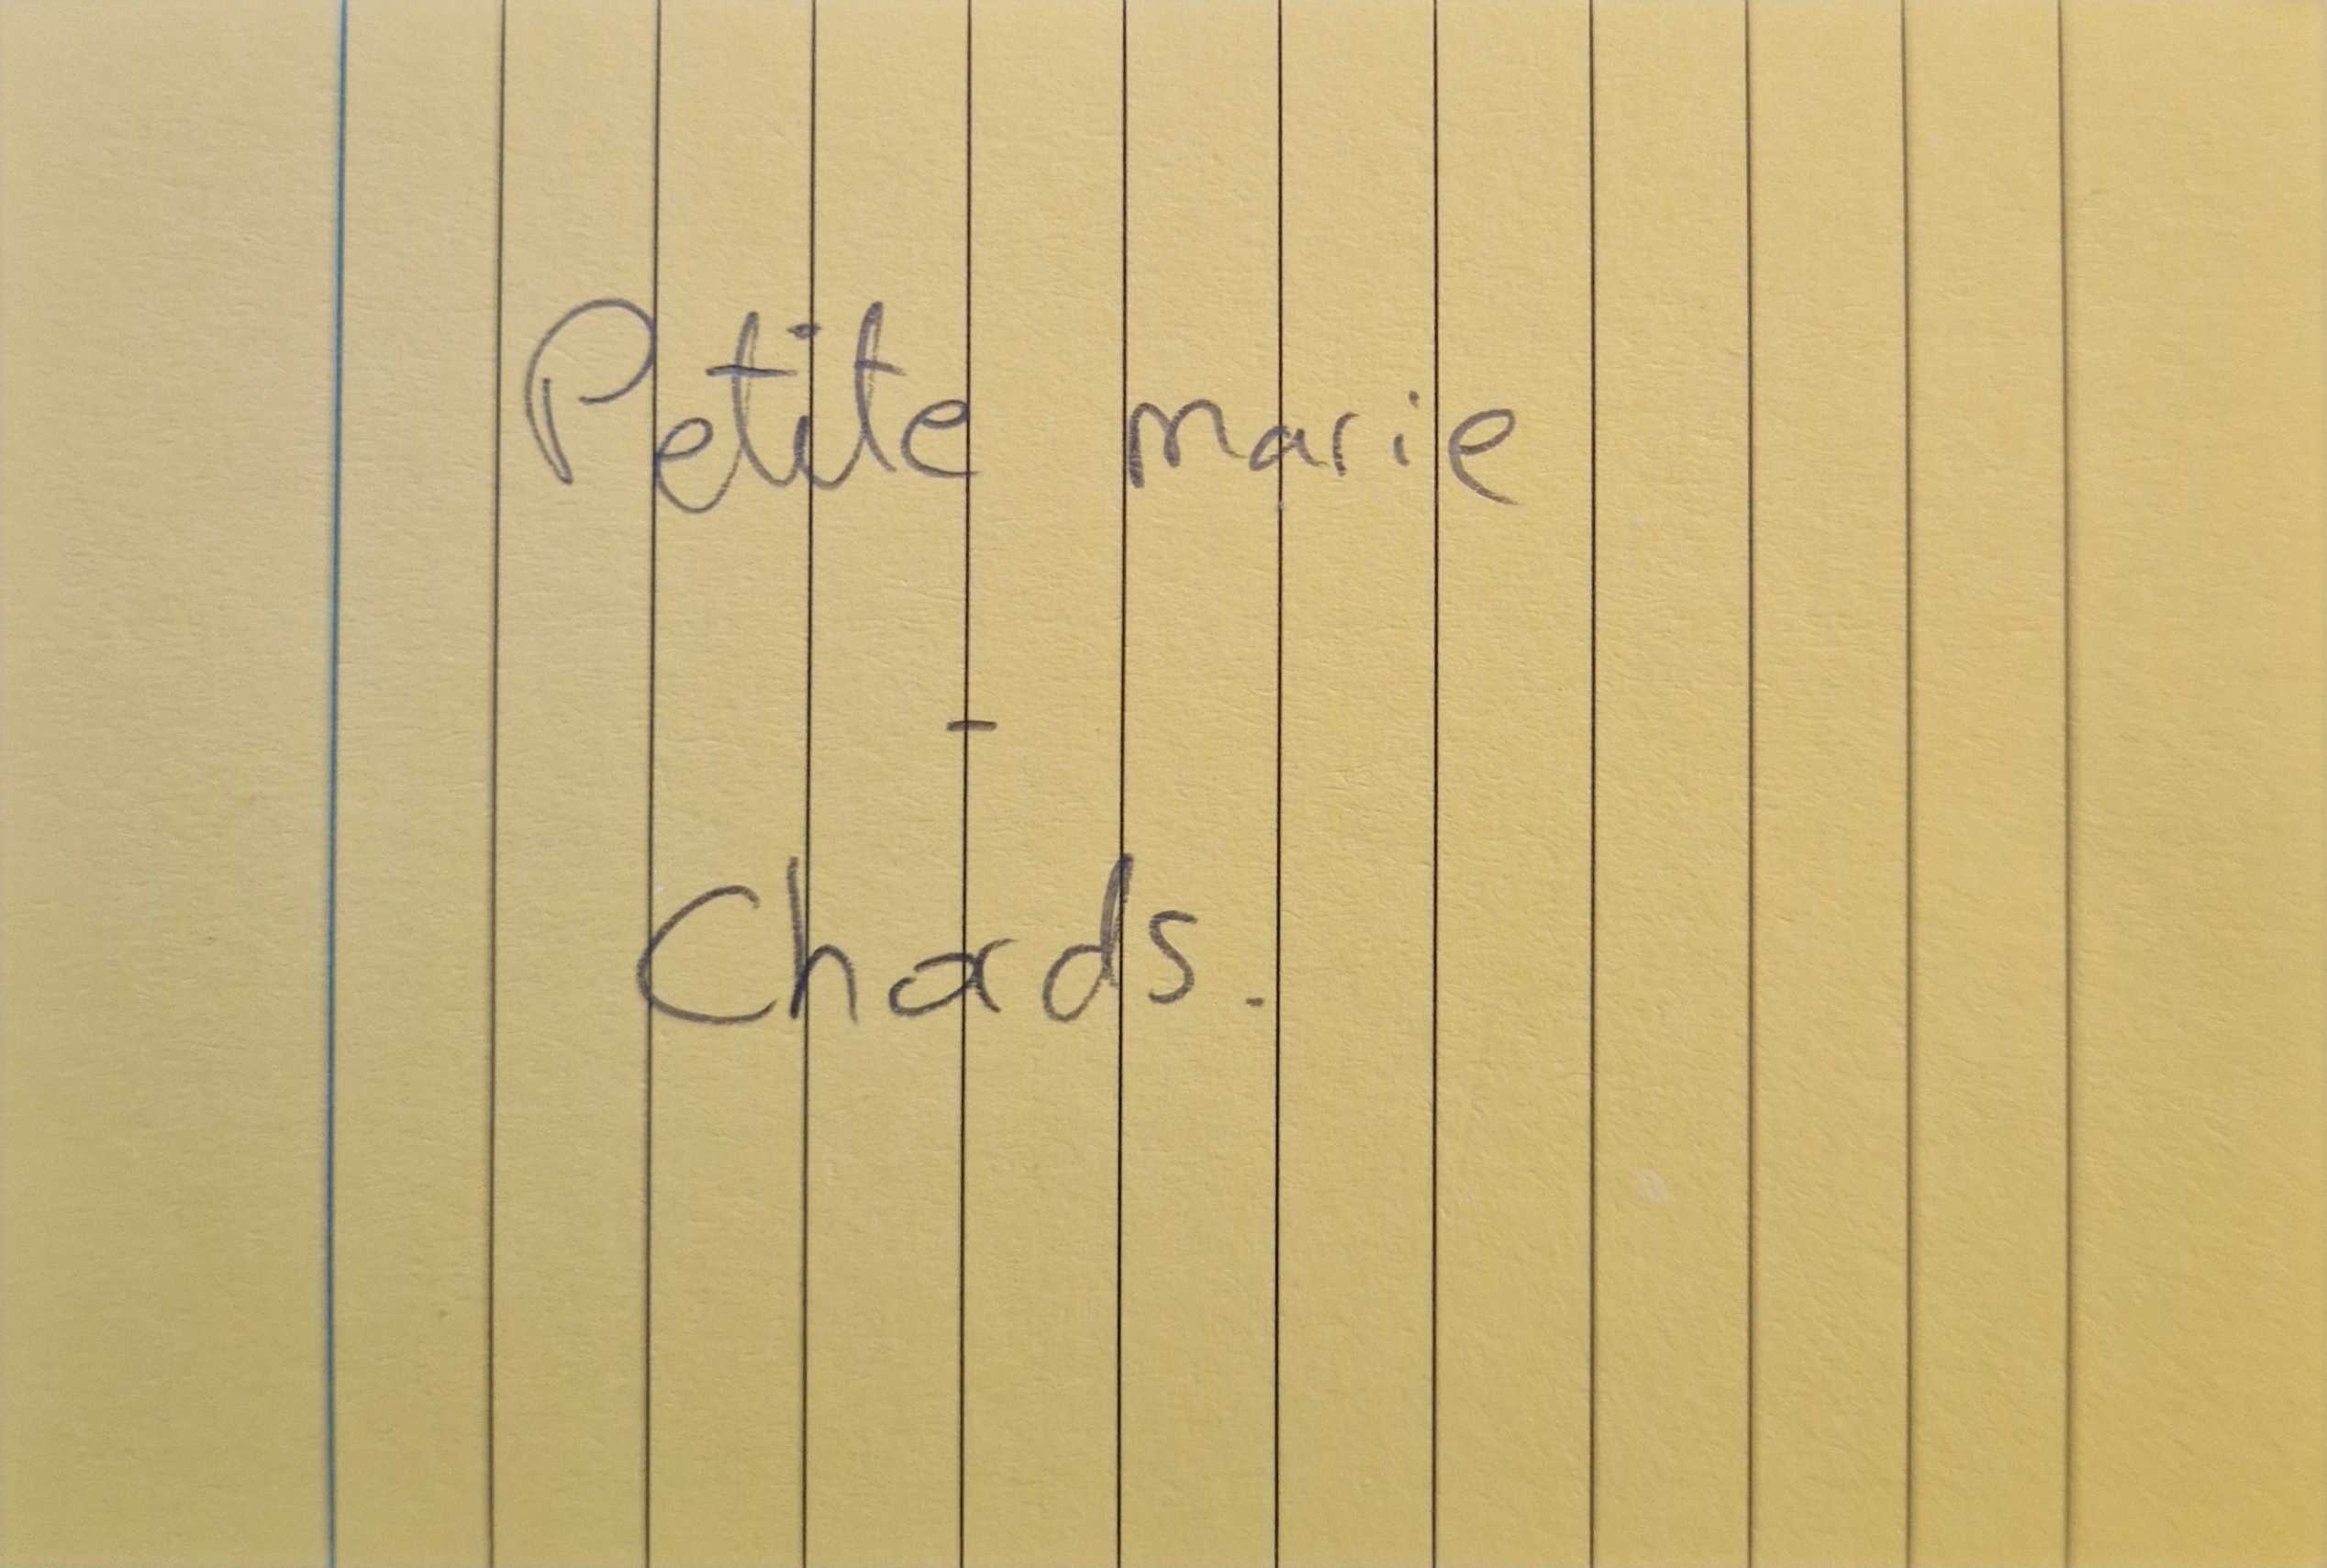 Petite marie
-
Chords.